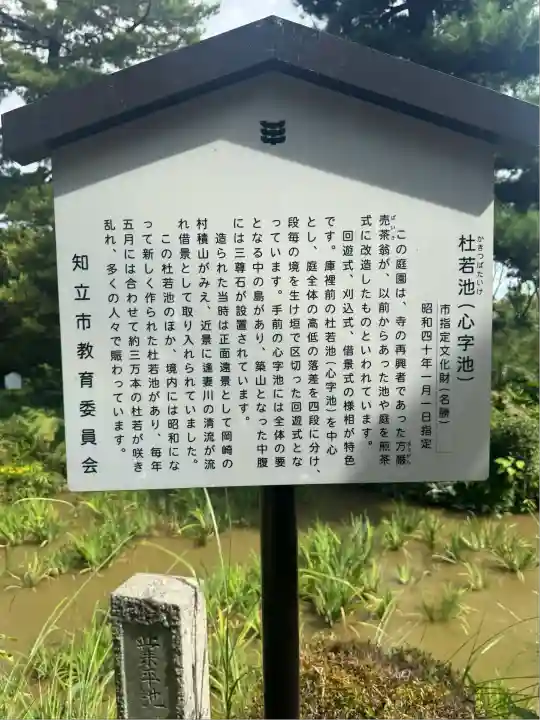 杜若池(心字池)
かきつばたいけ
市指定文化財(名勝)
昭和四十年一月一日指定
この庭園は、寺の再興者であった方巌
売茶翁が、以前からあった池や庭を煎茶
式に改造したものといわれています。
回遊式、刈込式、借景式の様相が特色
です。庫裡前の杜若池(心字池)を中心
とし、庭全体の高低の落差を四段に分け、
段毎の境を生け垣で区切った回遊式とな
っています。手前の心字池には全体の要
となる中の島があり、築山となった中腹
には三尊石が設置されています。
造られた当時は正面遠景として岡崎の
村積山がみえ、近景に逢妻川の清流が流
れ借景として取り入れられていました。
この杜若池のほか、境内には昭和にな
って新しく作られた杜若池があり、毎年
五月には合わせて約三万本の杜若が咲き
乱れ、多くの人々で賑わっています。
知立市教育委員会
業平池